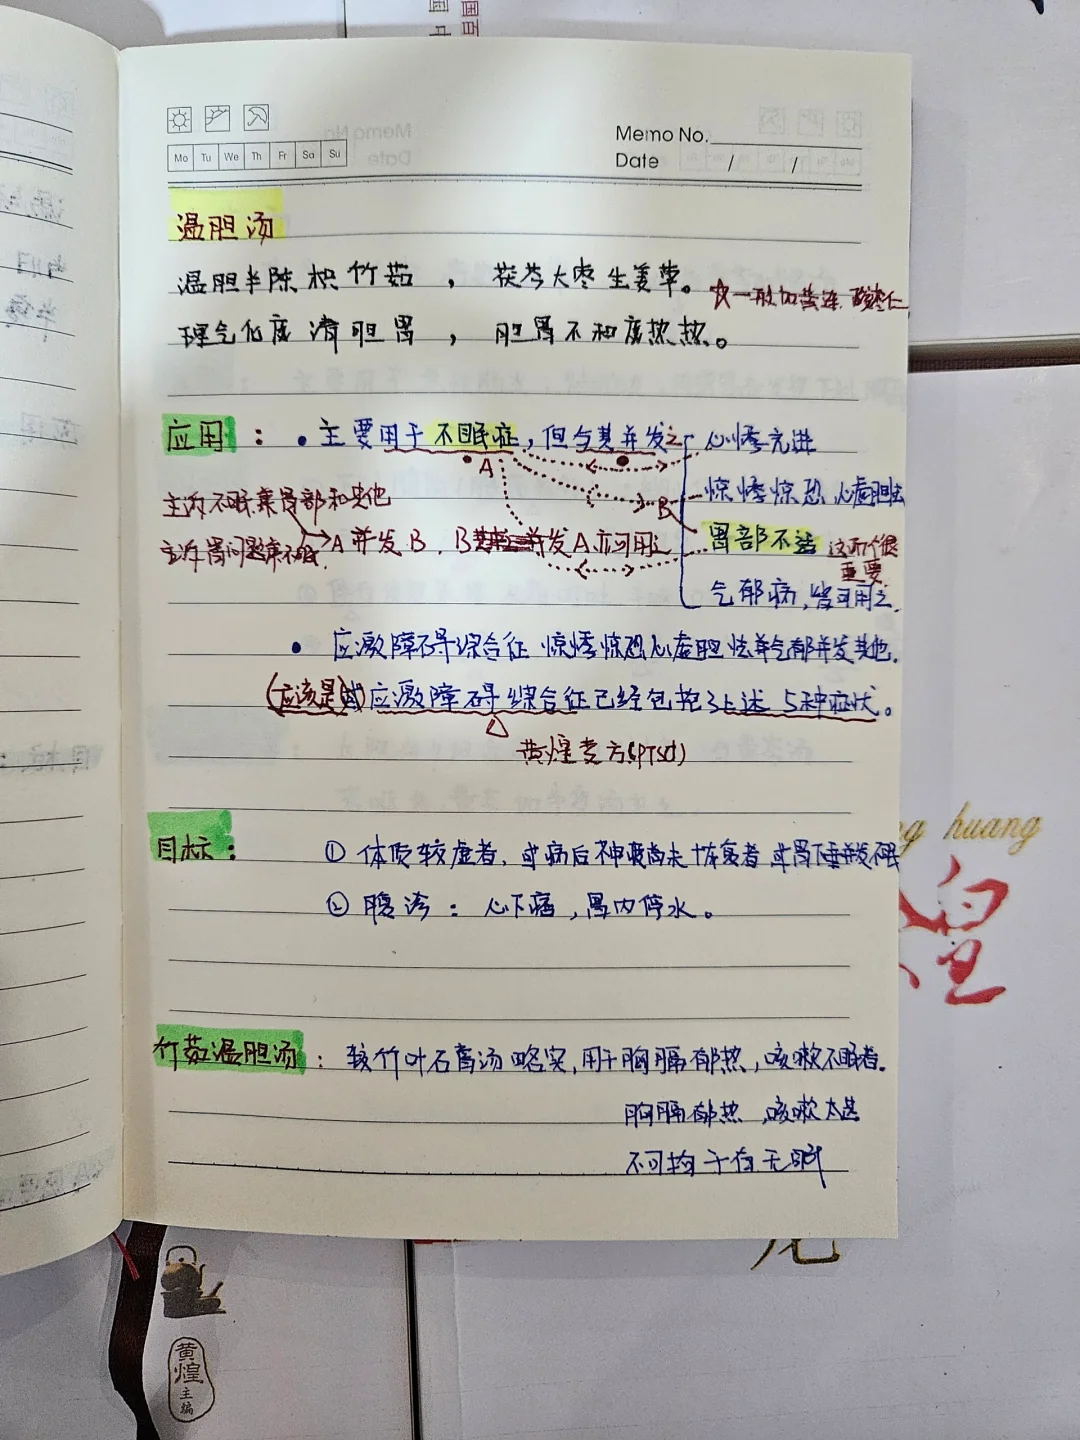 Memo No.
Mo Tu We Th Fr Sa Su
Date / /
温胆汤
温胆半陈枳竹茹，茯苓大枣生姜草。☆一般加黄连、酸枣仁
理气化痰清胆胃，胆胃不和痰热热。
应用：• 主要用于不眠症，但与其并发之 心悸亢进
• A
惊悸惊恐 心虚胆怯
B
主治不眠兼胃部和其他
胃部不适 这两个很重要
→A并发B，B并发A亦可用之
气郁病，皆可用之.
• 应激障碍综合征 惊悸惊恐心虚胆怯并气郁并发其他.
(应该是对)应激障碍综合征已经包括了上述5种症状。
△
黄煌麦方(PTSD)
目标：① 体质较虚者，或病后神疲尚未恢复者 或胃下垂并发不眠
② 腹诊：心下痞，胃内停水。
竹茹温胆汤：较竹叶石膏汤略实，用于胸膈郁热，咳嗽不眠者.
胸膈郁热，咳嗽太甚
不可拘于有无
ng huang
煌
黄煌
主编